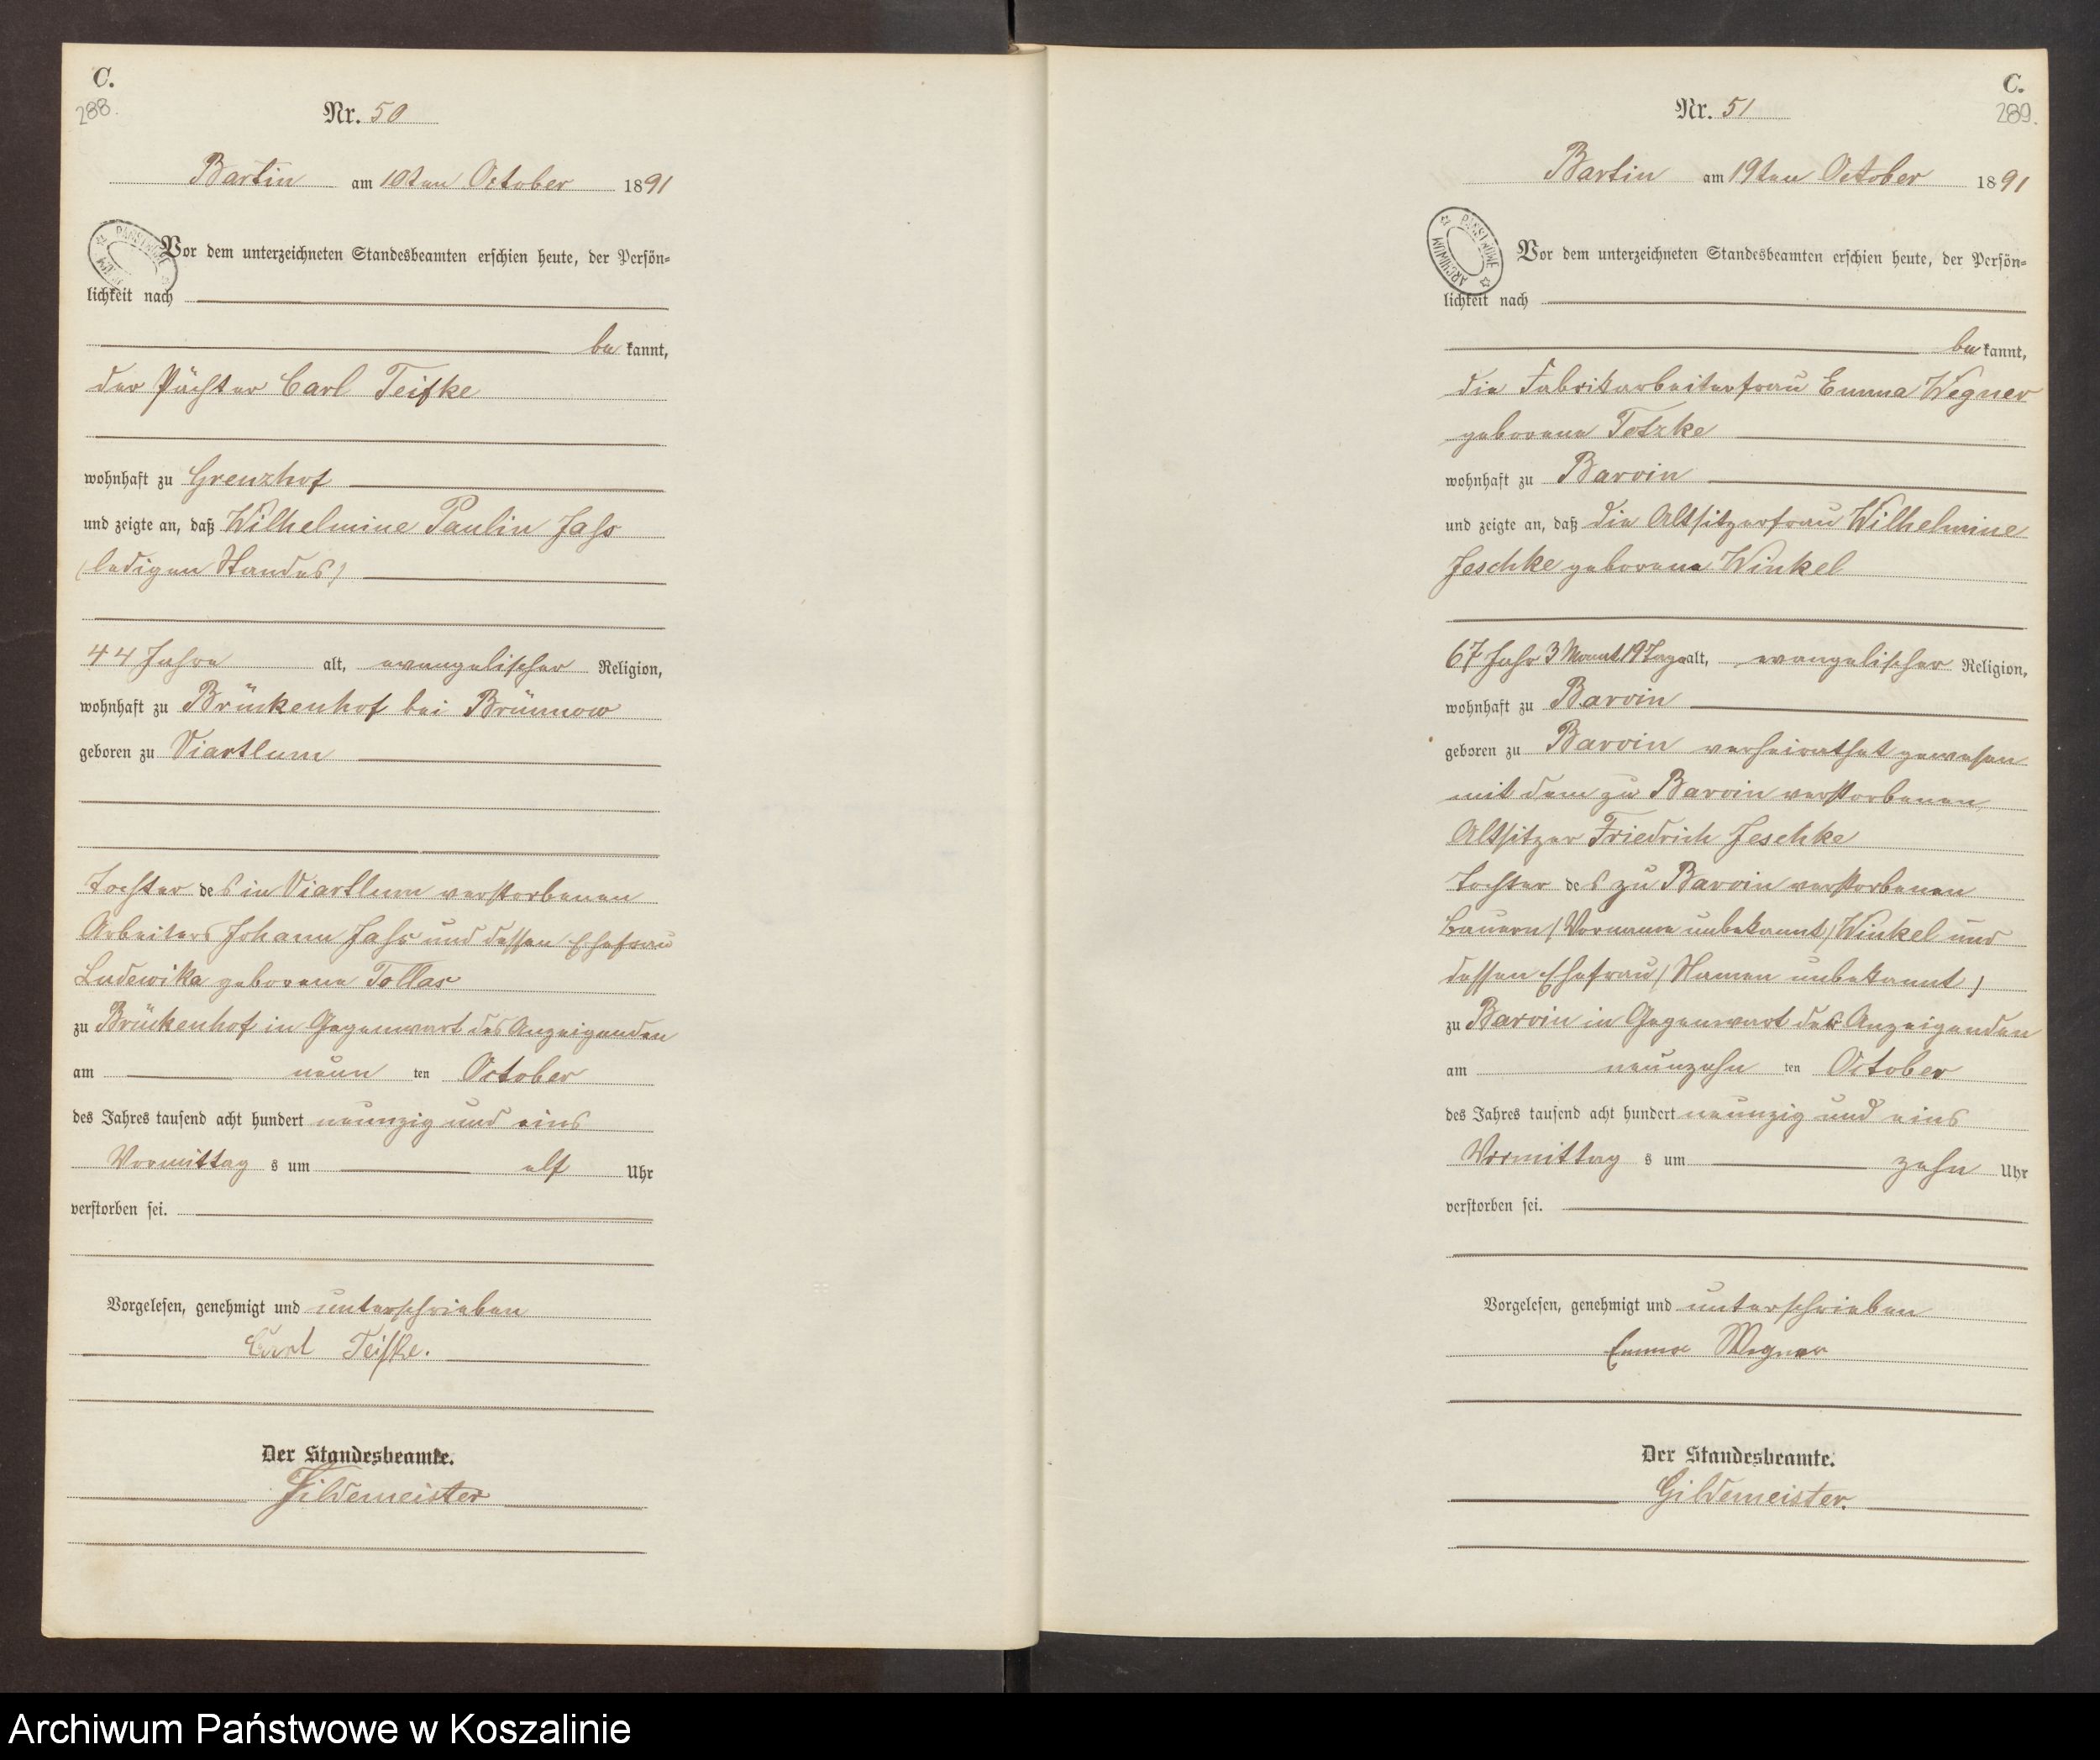 C.
288.
Nr. 50
Bartin am 10ten October 1891
Vor dem unterzeichneten Standesbeamten erschien heute, der Persön-
lichkeit nach
be kannt,
der Pächter Carl Teifke
wohnhaft zu Grenzhof
und zeigte an, daß Wilhelmine Paulin Jahs
(ledigen Standes)
44 Jahre alt, evangelischer Religion,
wohnhaft zu Brückenhof bei Brünnow
geboren zu Viartlum
Tochter des in Viartlum verstorbenen
Arbeiters Johann Jahs und dessen Ehefrau
Ludewika geborene Tollas
zu Brückenhof in Gegenwart des Anzeigenden
am neun ten October
des Jahres tausend acht hundert neunzig und eins
Vormittag s um elf Uhr
verstorben sei.
Vorgelesen, genehmigt und unterschrieben
Carl Teifke.
Der Standesbeamte.
Gildemeister
C.
289.
Nr. 51
Bartin am 19ten October 1891
PAŃSTWOWE ARCHIWUM
Vor dem unterzeichneten Standesbeamten erschien heute, der Persön-
lichkeit nach
be kannt,
die Fabrikarbeiterfrau Emma Wegner
geborene Totzke
wohnhaft zu Barvin
und zeigte an, daß die Altsitzerfrau Wilhelmine
Jeschke geborene Winkel
67 Jahr 3 Monat 19 Tage alt, evangelischer Religion,
wohnhaft zu Barvin
geboren zu Barvin verheirathet gewesen
mit dem zu Barvin verstorbenen
Altsitzer Friedrich Jeschke
Tochter des zu Barvin verstorbenen
Bauern (Vorname unbekannt) Winkel und
dessen Ehefrau (Namen unbekannt)
zu Barvin in Gegenwart der Anzeigenden
am neunzehn ten October
des Jahres tausend acht hundert neunzig und eins
Vormittag s um zehn Uhr
verstorben sei.
Vorgelesen, genehmigt und unterschrieben
Emma Wegner
Der Standesbeamte.
Gildemeister.
Archiwum Państwowe w Koszalinie